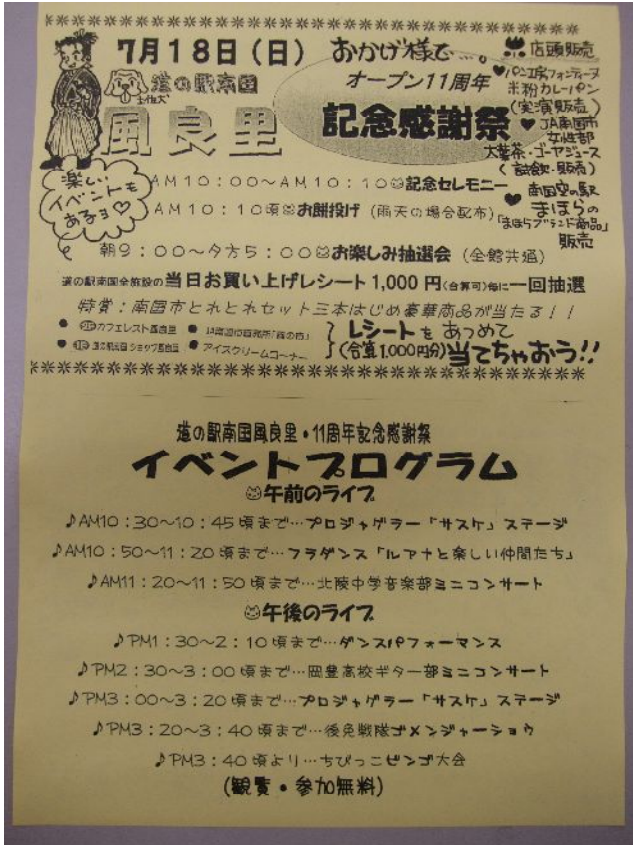 7月18日(日) おかげ様で…。
道の駅南国
土佐犬
風良里
オープン11周年
記念感謝祭
店頭販売
♥パン工房フォンティーヌ
米粉カレーパン
(実演販売)
♥JA南国市
女性部
大葉茶・ゴーヤジュース
(試飲・販売)
♥南国空の駅
まほらの
「まほらブランド商品」
販売
楽しい
イベントも
あるョ♡
AM10:00〜AM10:10記念セレモニー
AM10:10頃お餅投げ(雨天の場合配布)
朝9:00〜夕方5:00お楽しみ抽選会(全館共通)
道の駅南国全施設の当日お買い上げレシート1,000円(合算可)毎に一回抽選
特賞:南国市とれとれセット三本はじめ豪華商品が当たる!!
● 2Fカフェレスト風良里
● 1F道の駅南国ショップ風良里
● アイスクリームコーナー
レシートをあつめて
(合算1,000円分)当てちゃおう!!
道の駅南国風良里・11周年記念感謝祭
イベントプログラム
午前のライブ
♪AM10:30〜10:45頃まで…プロジャグラー「サスケ」ステージ
♪AM10:50〜11:20頃まで…フラダンス「ルアナと楽しい仲間たち」
♪AM11:20〜11:50頃まで…北陵中学音楽部ミニコンサート
午後のライブ
♪PM1:30〜2:10頃まで…ダンスパフォーマンス
♪PM2:30〜3:00頃まで…岡豊高校ギター部ミニコンサート
♪PM3:00〜3:20頃まで…プロジャグラー「サスケ」ステージ
♪PM3:20〜3:40頃まで…後免戦隊ゴメンジャーショウ
♪PM3:40頃より…ちびっこビンゴ大会
(観覧・参加無料)